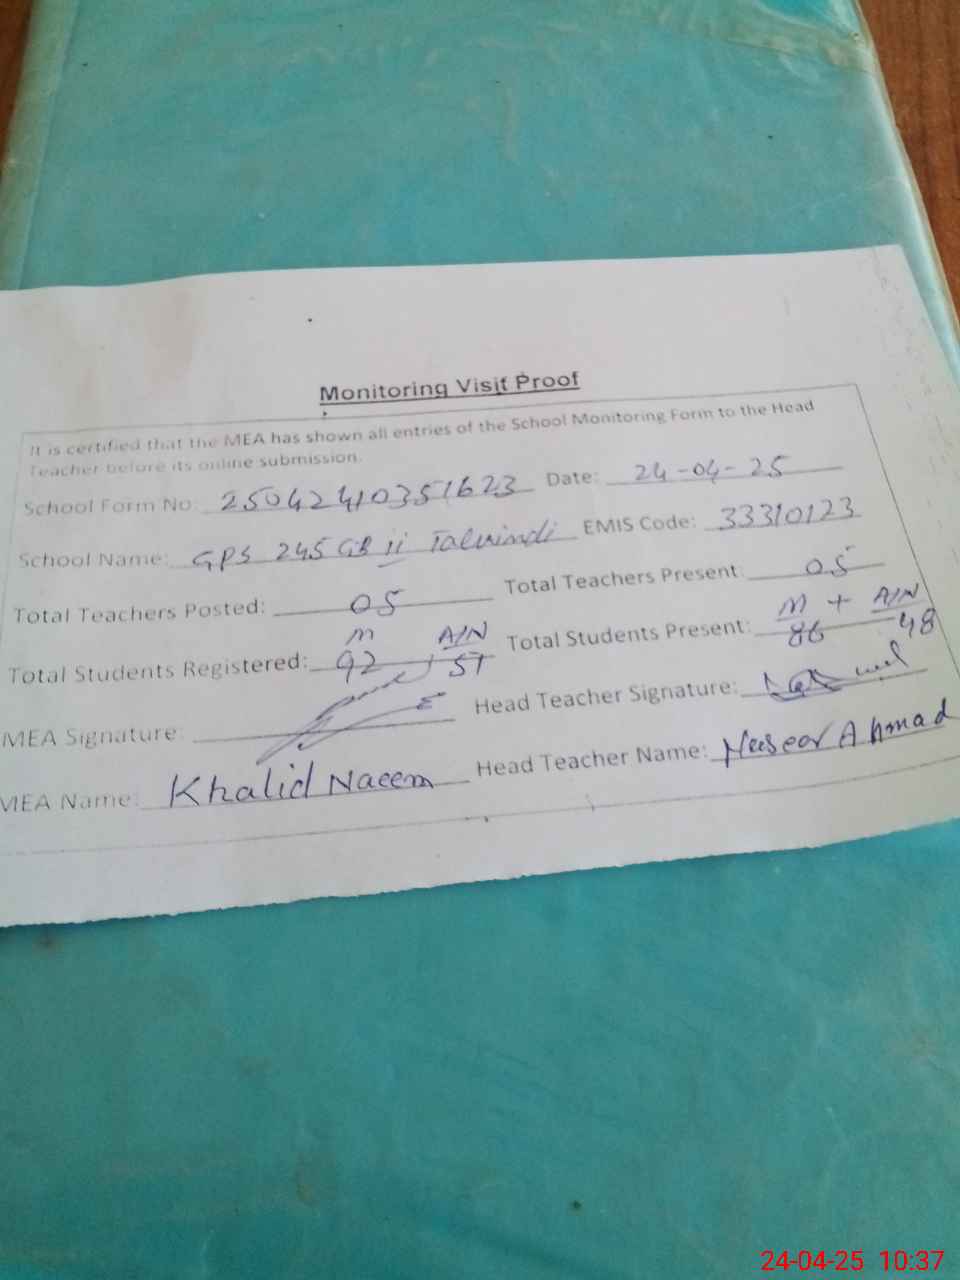 Monitoring Visit Proof
It is certified that the MEA has shown all entries of the School Monitoring Form to the Head
Teacher before its online submission.
School Form No: 25042410351623 Date: 24-04-25
School Name: GPS 245 GB ii Talwindi EMIS Code: 33310123
Total Teachers Posted: 05 Total Teachers Present: 05
M A/N M + A/N
Total Students Registered: 92 + 57 Total Students Present: 86 48
MEA Signature: Head Teacher Signature:
MEA Name: Khalid Naeem Head Teacher Name: Ahmad
24-04-25 10:37